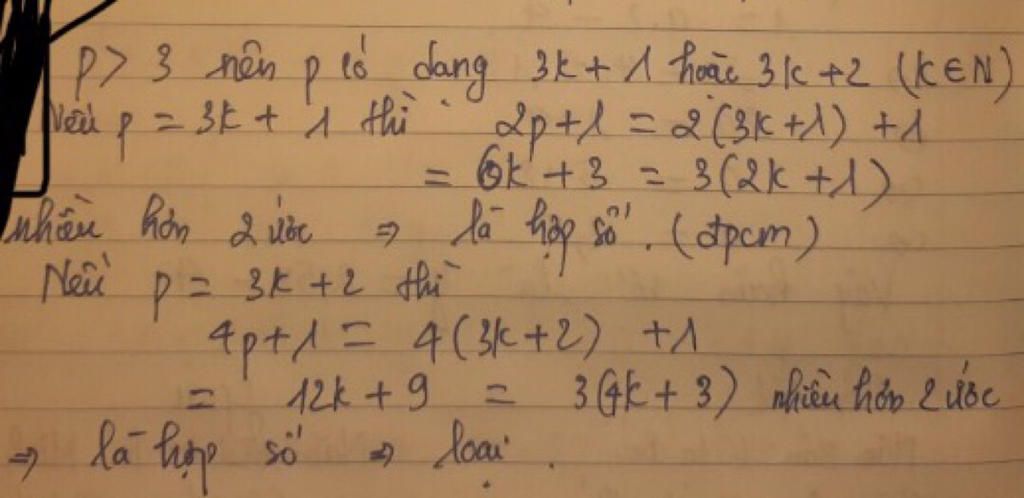 p > 3 nên p có dạng 3k + 1 hoặc 3k + 2 (k ∈ N)
Nếu p = 3k + 1 thì 2p + 1 = 2(3k + 1) + 1
= 6k + 3 = 3(2k + 1)
nhiều hơn 2 ước ⇒ là hợp số. (đpcm)
Nếu p = 3k + 2 thì
4p + 1 = 4(3k + 2) + 1
= 12k + 9 = 3(4k + 3) nhiều hơn 2 ước
⇒ là hợp số ⇒ loại.